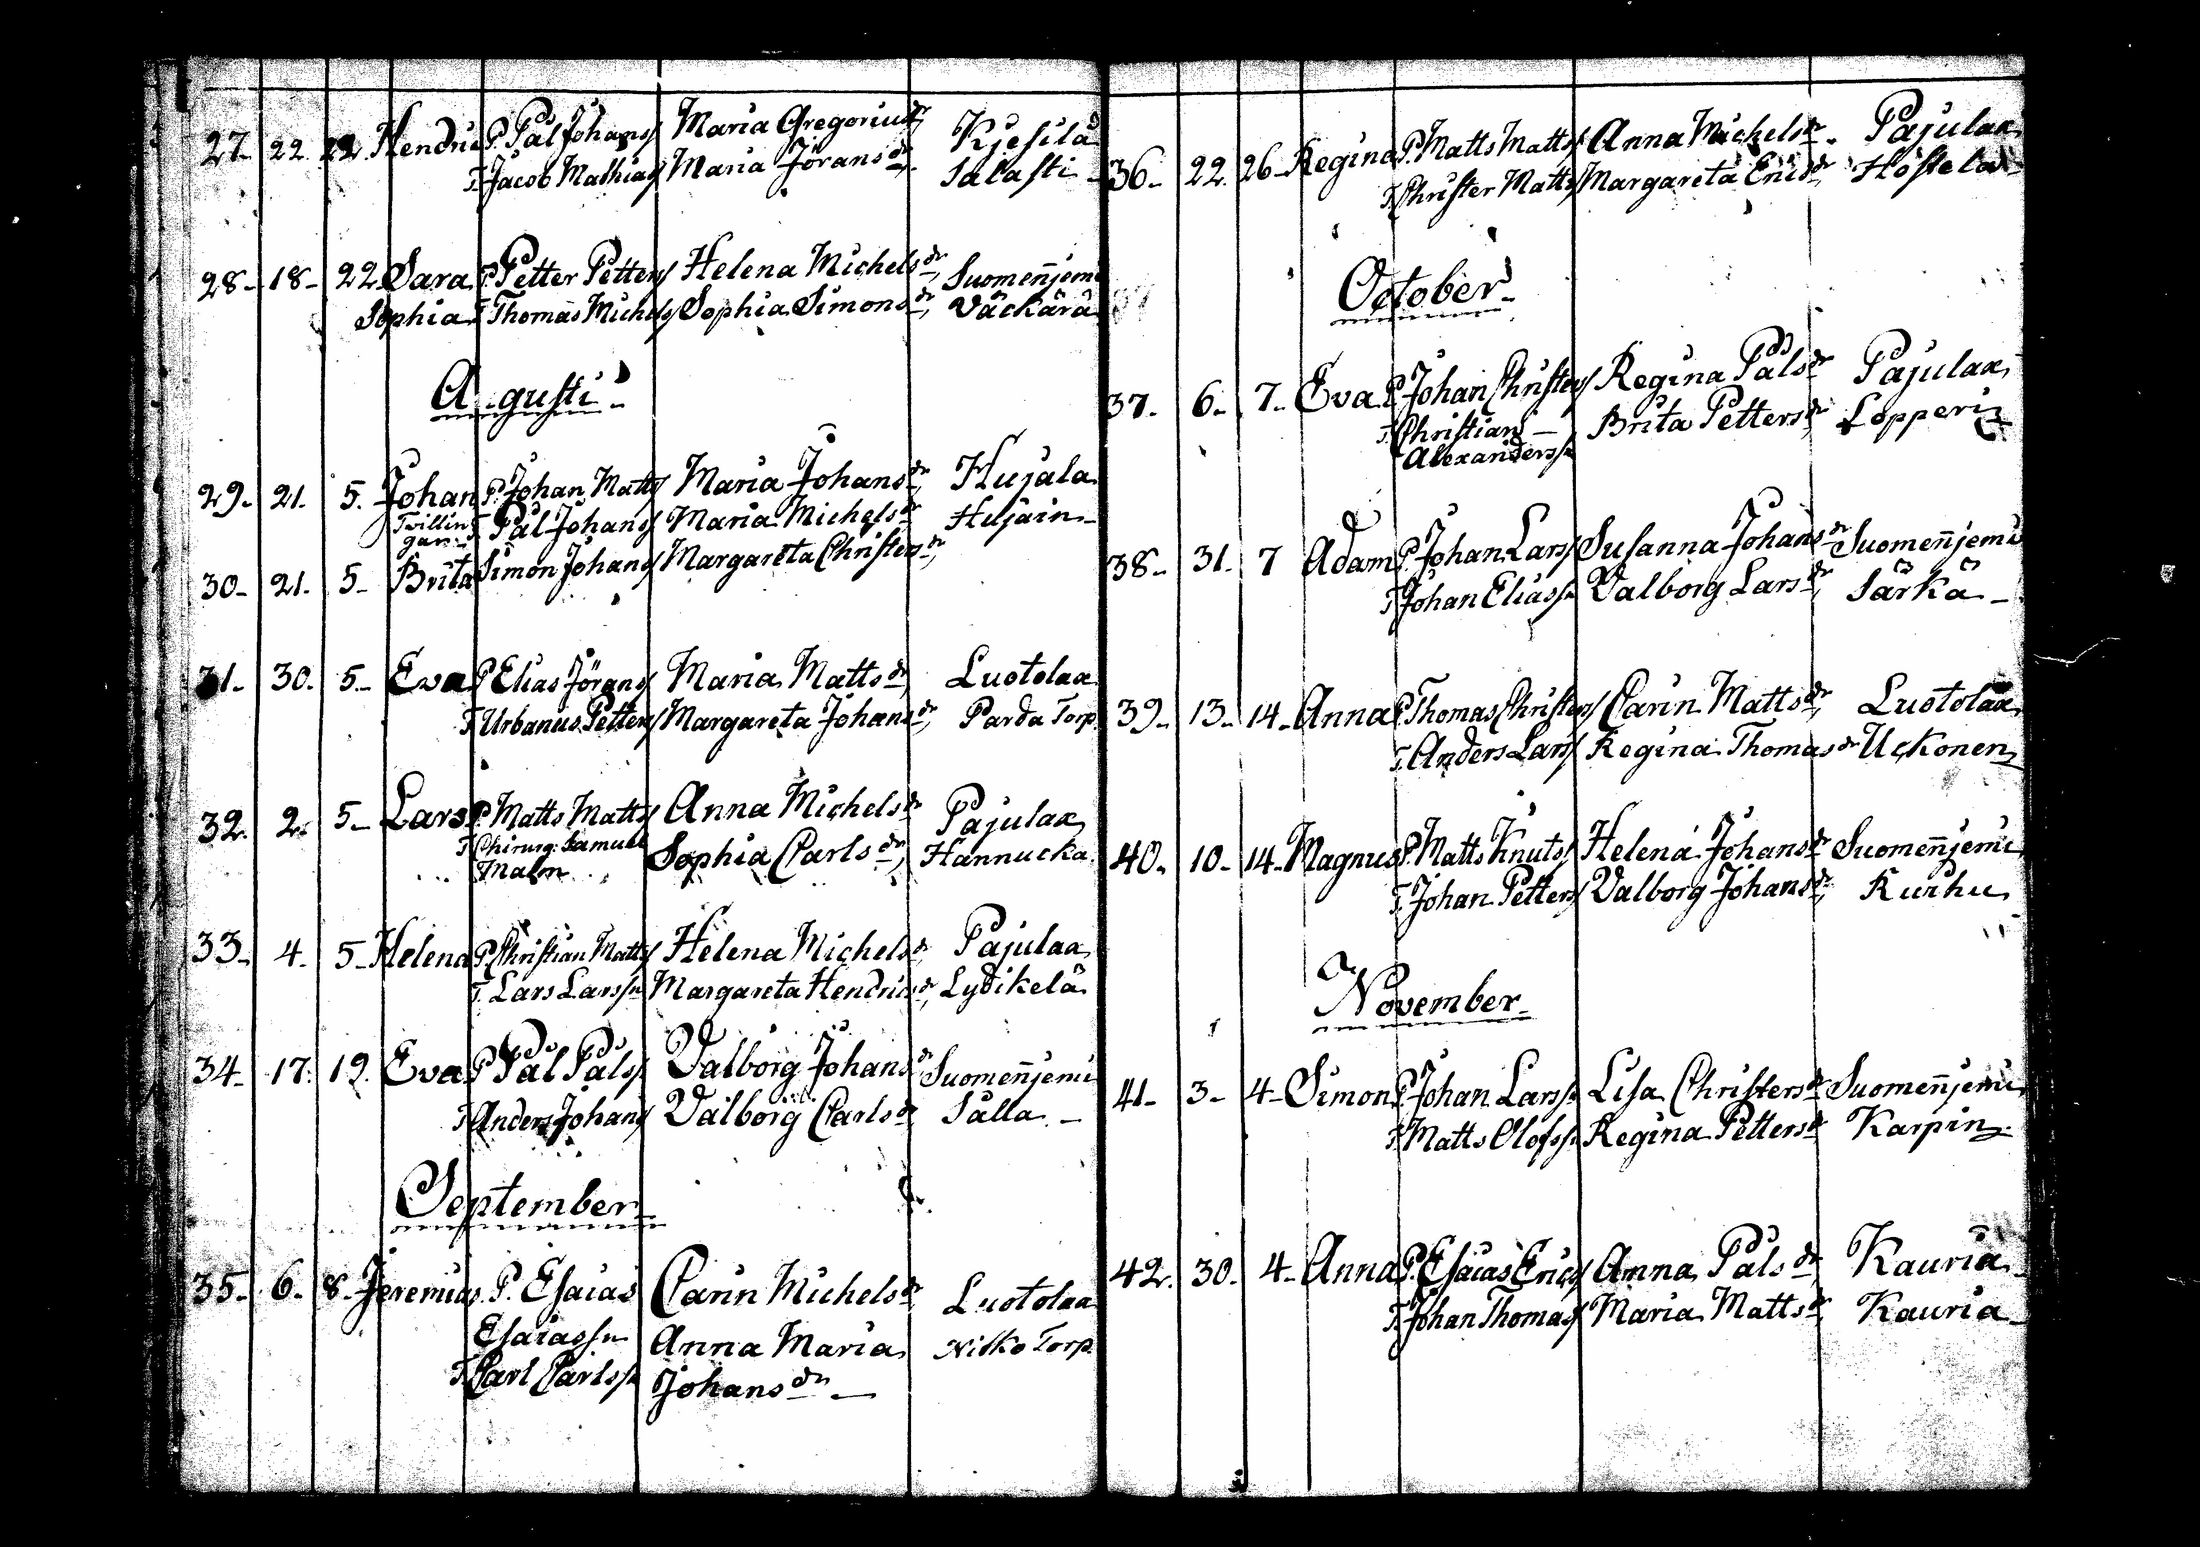 27. 22. 22. Hendric P. Pål Johans/ Maria Gregoriidr, Kjesilä
T. Jacob Mathias/ Maria Jöransdr, Salasti -
28 - 18 - 22. Sara P. Petter Petters/ Helena Michelsdr, Suomen̄jemi
Sophia T. Thomas Michels/ Sophia Simonsdr, Väckärä
Augusti -
29 - 21. 5. Johan P. Johan Matts/ Maria Johansdr, Hujala
Tvillin T. Pål Johans/ Maria Michelsdr Hujain -
gar:
30 - 21. 5 - Brita Simon Johans/ Margareta Christersdr,
31 - 30. 5 - Eva P. Elias Jörans/ Maria Mattsdr, Luotolax
T. Urbanus Petters/ Margareta Johansdr, Parda Torp.
32. 2. 5 - Lars P. Matts Matts/ Anna Michelsdr Pajulax
T. Chirurg: Samuel Sophia Carlsdr, Hannucka.
Malm
33 - 4. 5 - Helena P. Christian Matts/ Helena Michelsdr, Pajulax
T. Lars Larssn Margareta Hendricsdr, Lydikelä
34 - 17. 19. Eva P. Pål Påls/ Valborg Johansdr Suomen̄jemi
T. Anders Johans/ Valborg Carlsdr Sälla -
September
35 - 6. 8 - Jeremias P. Esaias Carin Michelsdr Luotolax
Esaiassn Anna Maria Nisko Torp.
T. Carl Carlssn Johansdr -
36 - 22. 26 - Regina P. Matts Matts/ Anna Michelsdr. Pajulax
T. Christer Matts/ Margareta Ericsdr, Höstela
October -
37. 6 - 7 - Eva P. Johan Christers/ Regina Pålsdr Pajulax
T. Christian - Brita Pettersdr, Lopperi
Alexanderssn
38 - 31. 7 Adam P. Johan Larss/ Susanna Johansdr Suomen̄jemi
T. Johan Eliassn Valborg Larsdr, Särkä -
39 - 13 - 14 - Anna P. Thomas Christers/ Carin Mattsdr, Luotolax
T. Anders Lars/ Regina Thomasdr Uckonen
40 - 10 - 14 - Magnus P. Matts Knuts/ Helena Johansdr Suomen̄jemi
T. Johan Petters/ Valborg Johansdr, Kurhu
November -
41 - 3 - 4 - Simon P. Johan Larssn Lisa Christersdr Suomen̄jemi
T. Matts Olofssn Regina Pettersdr Karpin
42. 30. 4 - Anna P. Esaias Erics/ Anna Pålsdr, Kauria
T. Johan Thomas/ Maria Mattsdr, Kauria -